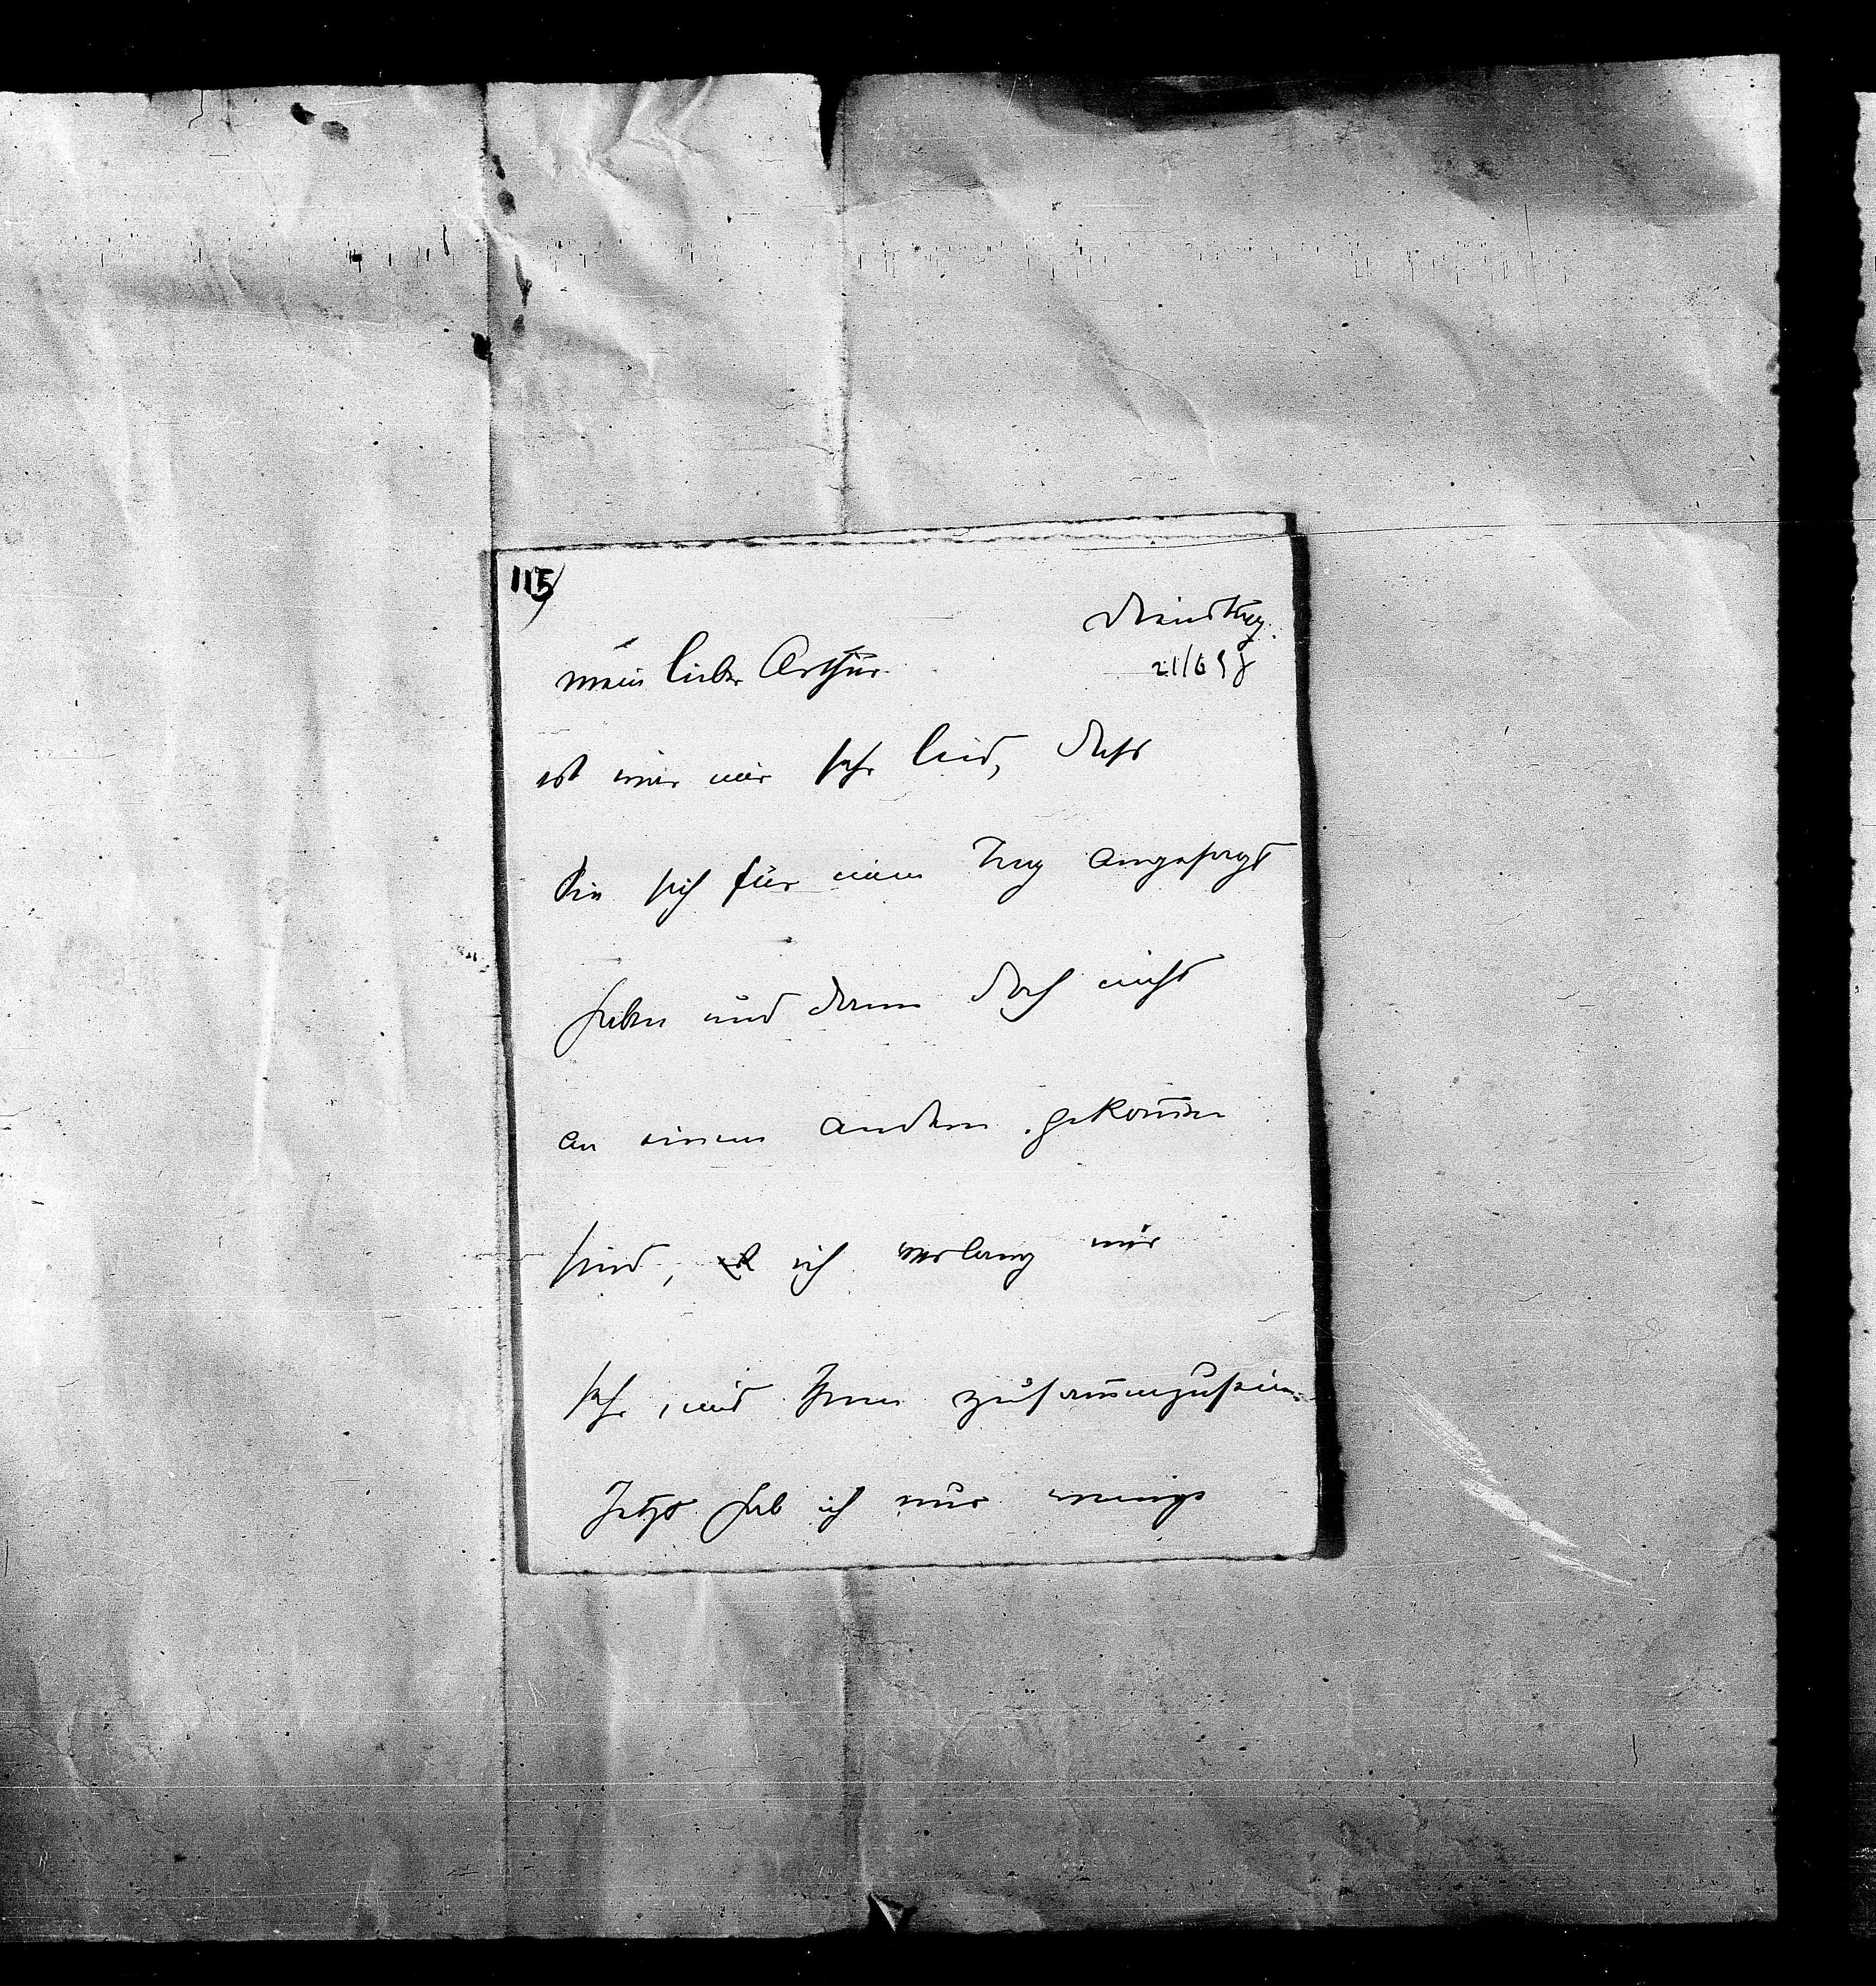 115
Dienstag.
mein lieber Arthur.
21/6 98
ist mir nur sehr leid, dass
Sie sich für einen Tag angesagt
haben und dann doch nicht
an einem andern gekommen
sind, ich verlang mir
sehr, mit Ihnen zusammenzusein.
Jetzt hab ich nur wenige